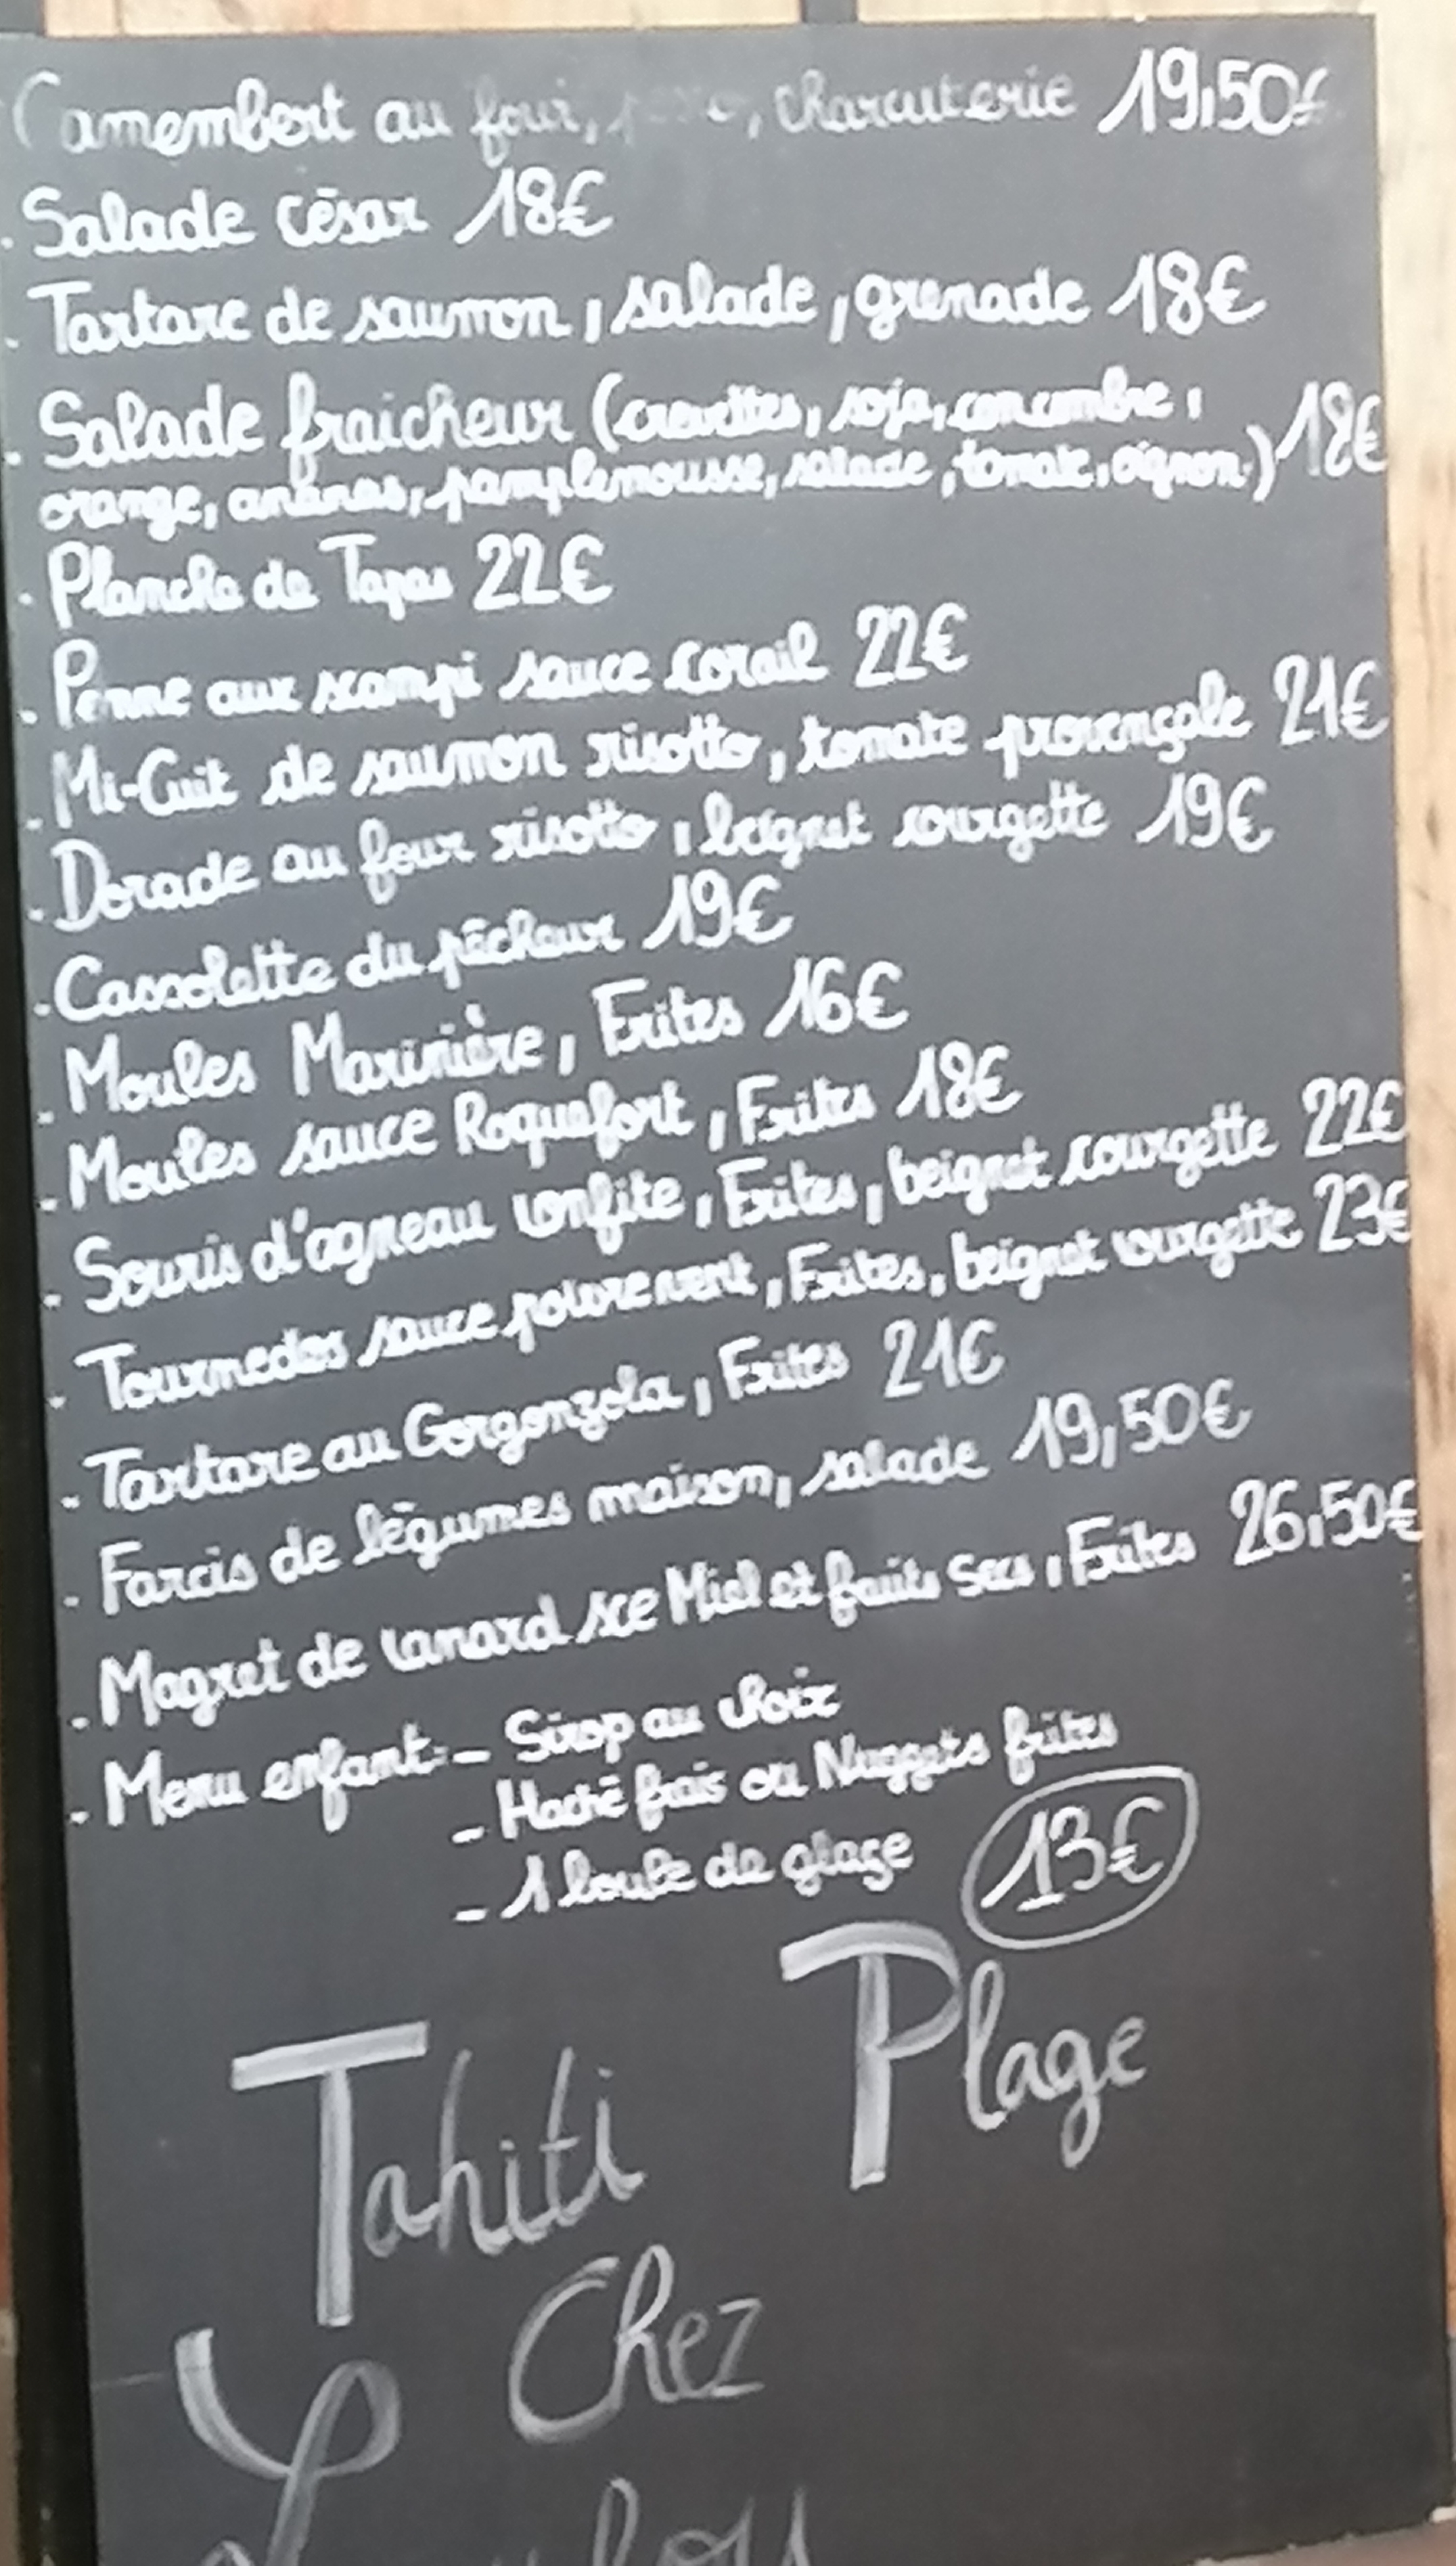 Camembert au four, charcuterie 19,50€
. Salade césar 18€
. Tartare de saumon, salade, grenade 18€
. Salade fraicheur (crevettes, soja, concombre,
orange, ananas, pamplemousse, salade, tomate, oignon.) 18€
. Planche de Tapas 22€
. Penne aux scampi sauce corail 22€
. Mi-Cuit de saumon risotto, tomate provençale 21€
. Dorade au four risotto, beignet courgette 19€
. Cassolette du pêcheur 19€
. Moules Marinière, Frites 16€
. Moules sauce Roquefort, Frites 18€
. Souris d'agneau confite, Frites, beignet courgette 22€
. Tournedos sauce poivre vert, Frites, beignet courgette 23€
. Tartare au Gorgonzola, Frites 21€
. Farcis de légumes maison, salade 19,50€
. Magret de canard sce Miel et fruits secs, Frites 26,50€
. Menu enfant: - Sirop au choix
- Haché frais ou Nuggets frites
- 1 boule de glace 13€
Tahiti Plage
Chez